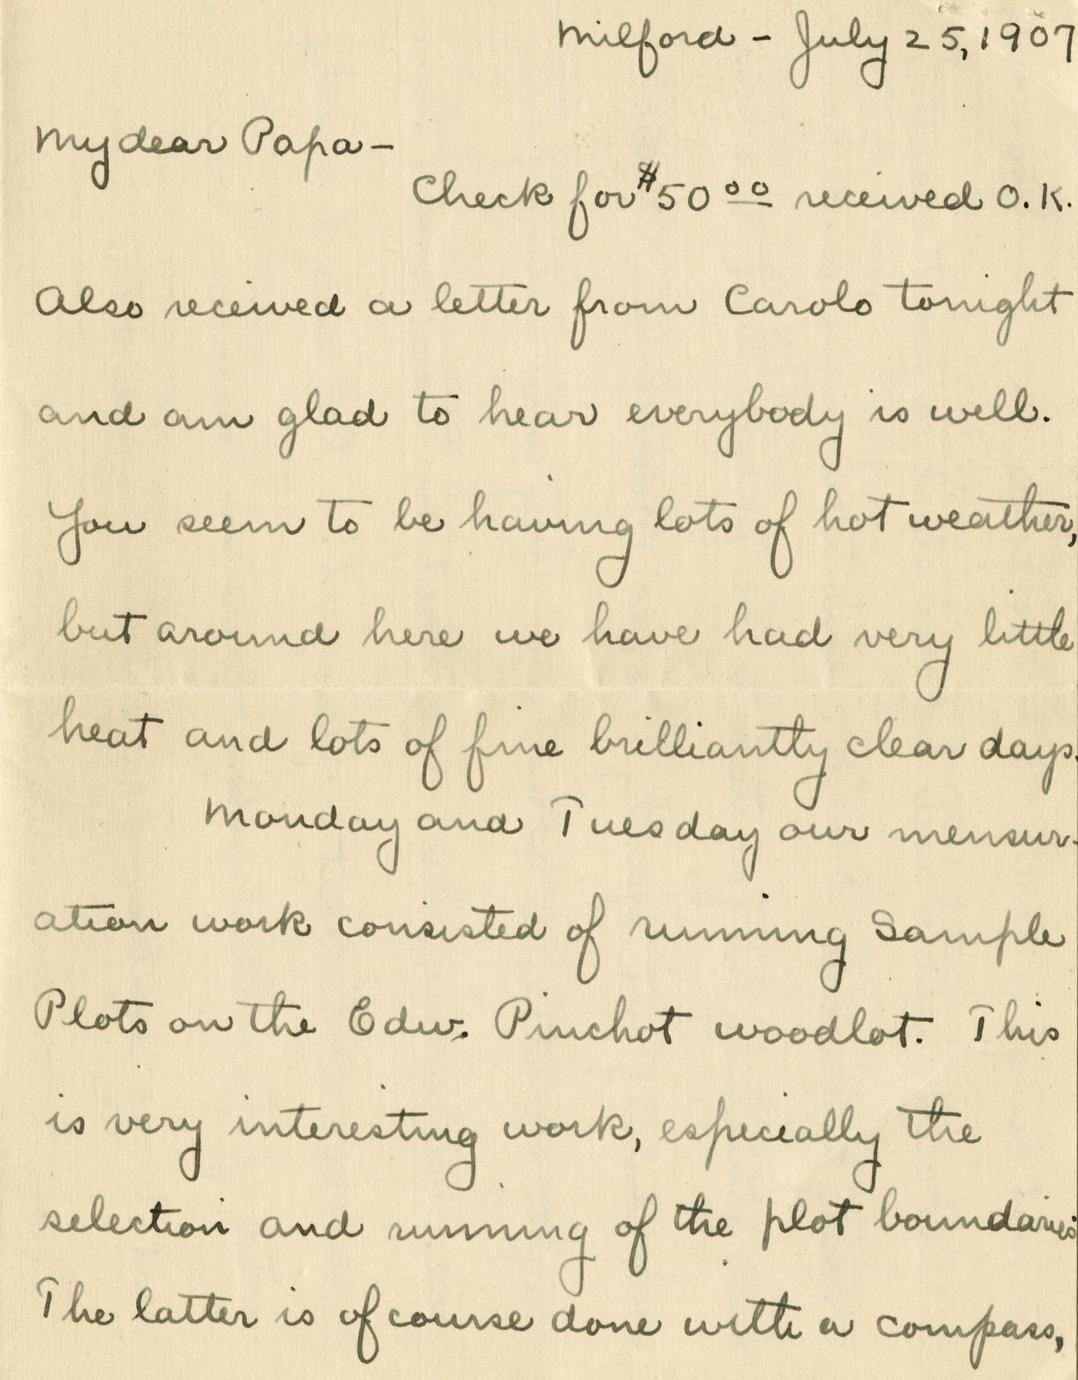 Milford - July 25, 1907
My dear Papa -
Check for $50 00 received O.K.
Also received a letter from Carolo tonight
and am glad to hear everybody is well.
You seem to be having lots of hot weather,
but around here we have had very little
heat and lots of fine brilliantly clear days.
Monday and Tuesday our mensur-
ation work consisted of running Sample
Plots on the Edw. Pinchot woodlot. This
is very interesting work, especially the
selection and running of the plot boundaries
The latter is of course done with a compass,